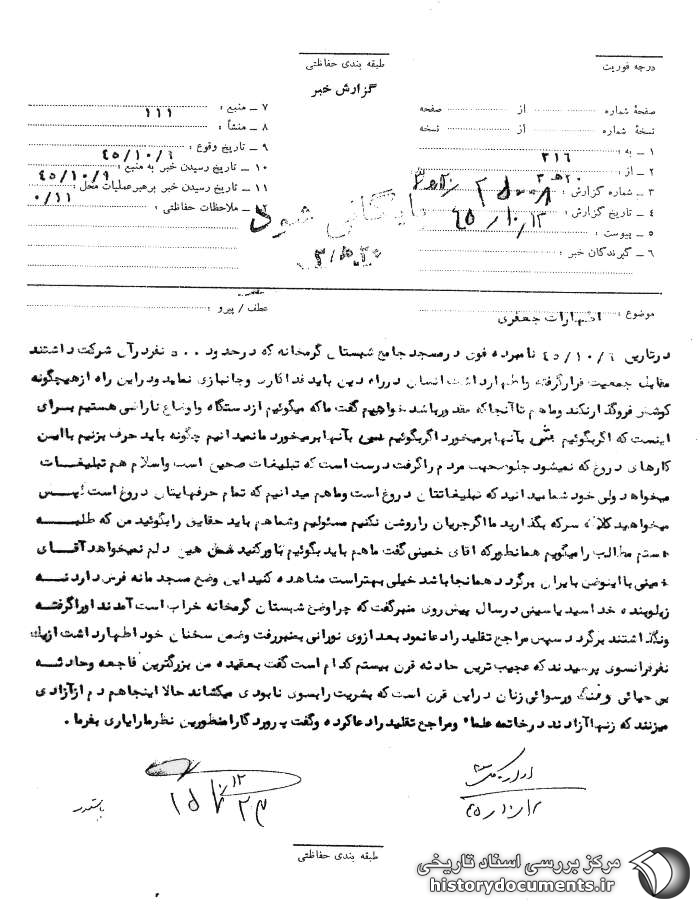 درجه فوریت
طبقه بندی حفاظتی
گزارش خبر
صفحهٔ شماره از صفحه
نسخهٔ شماره از نسخه
۱ ـ به : ۳۱۶
۲ ـ از : ۲۰ ه ۳
۳ ـ شماره گزارش :
۴ ـ تاریخ گزارش : ۴۵/۱۰/۱۳
۵ ـ پیوست :
۶ ـ گیرندگان خبر :
۷ ـ منبع : ۱۱۱
۸ ـ منشأ :
۹ ـ تاریخ وقوع : ۴۵/۱۰/۶
۱۰ ـ تاریخ رسیدن خبر به منبع : ۴۵/۱۰/۹
۱۱ ـ تاریخ رسیدن خبر برهبرعملیات محل :
۱۲ ـ ملاحظات حفاظتی :
بایگانی شود
موضوع : اظهارات جعفری
عطف / پیرو :
درتاریخ ۴۵/۱۰/۶ نامبرده فوق درمسجد جامع شبستان گرمخانه که درحدود ۵۰۰ نفردرآن شرکت داشتند
مقابل جمعیت قرارگرفته واظهارداشت انسان درراه دین باید فداکاری وجانبازی نماید ودراین راه ازهیچگونه
کوششی فروگذارنکند وماهم تاآنجا که مقدورباشد خواهیم گفت ماکه میگوئیم ازدستگاه واوضاع ناراضی هستیم برای
اینست که اگربگوئیم بآنها برمیخورد اگربگوئیم بآنها برمیخورد مانمیدانیم چگونه باید حرف بزنیم بااین
کارهای دروغ که نمیشود جلوصحبت مردم راگرفت درست است که تبلیغات صحیح است واسلام هم تبلیغات
میخواهد ولی خود شما میدانید که تبلیغاتتان دروغ است وماهم میدانیم که تمام حرفهایتان دروغ است پس
میخواهید کلاه سرکه بگذارید مااگرجریان راروشن نکنیم مسئولیم وشماهم باید حقایق رابگوئید من که طلبه
هستم مطالب رامیگویم همانطورکه اقای خمینی گفت ماهم باید بگوئیم باورکنید هیچ دلم نمیخواهد آقای
خمینی بااینوضع بایران برگردد همانجا باشد خیلی بهتراست مشاهده کنید این وضع مسجد مانه فرش دارد نه
زیلوبنده خدا سید یاسینی درسال پیش روی منبرگفت که چراوضع شبستان گرمخانه خراب است آمدند اوراگرفته
ونگذاشتند برگردد سپس مراجع تقلید رادعانمود بعد ازوی نورانی بمنبررفت وضمن سخنان خود اظهارداشت ازیک
نفرفرانسوی پرسیدند که عجیب ترین حادثه قرن بیستم کدام است گفت بعقیده من بزرگترین فاجعه وحادثه
بی حیائی ورسوائی زنان دراین قرن است که بشریت رابسوی نابودی میکشاند حالا اینجاهم دم ازآزادی
میزنند که زنها آزادند درخاتمه علماء ومراجع تقلید رادعاکرده وگفت پروردگارا منظورین نظرمارایاری بفرما .
طبقه بندی حفاظتی
مرکز بررسی اسناد تاریخی
historydocuments.ir